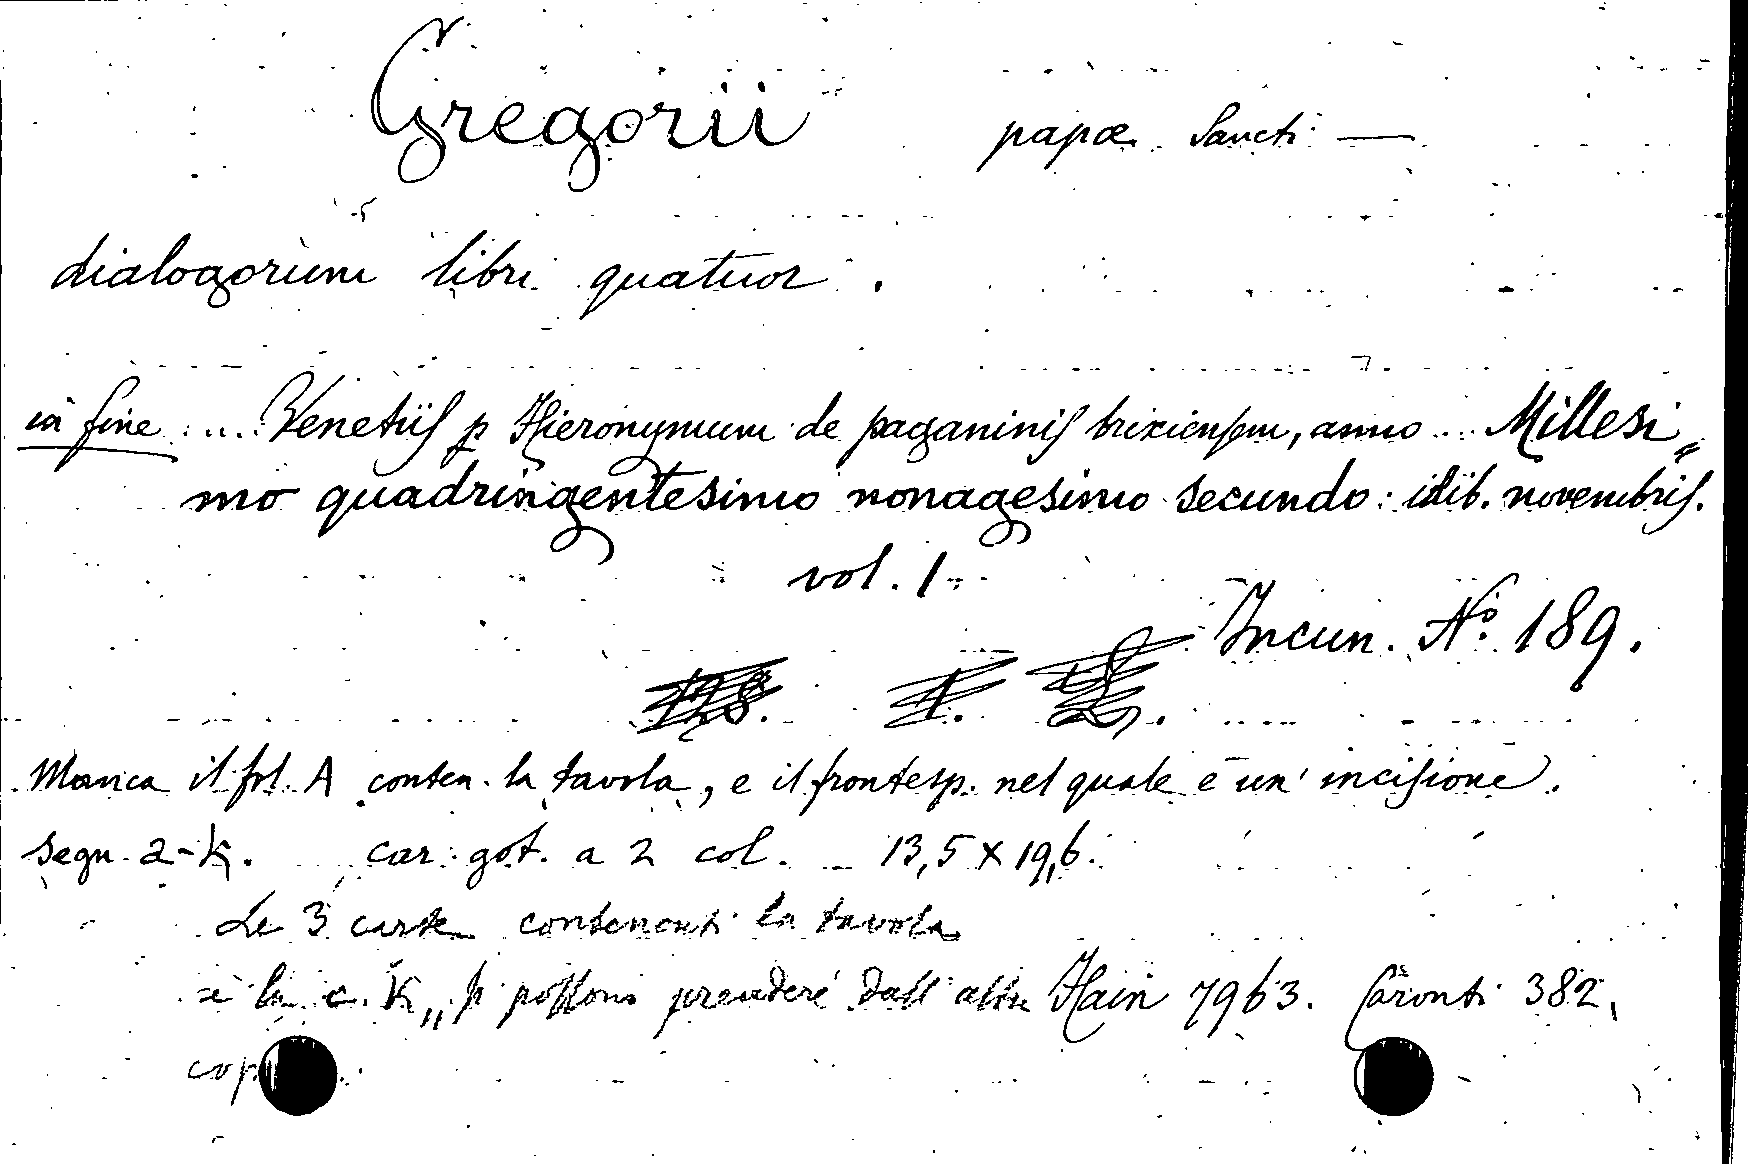 Gregorii papæ Sancti —
dialogorum libri quatuor.
in fine .... Venetiis p Hieronymum de paganinis brixiensem, anno ... Millesi„
mo quadringentesimo nonagesimo secundo: idib. novembris.
vol. 1.
Incun. Nº 189.
128. 1.
Manca il fol. A conten. la tavola, e il frontesp. nel quale è un' incisione.
segn. a-k. car. got. a 2 col. 13,5 x 19,6.
Le 3 carte contenenti la tavola
e la c. k„ si possono prendere dall' altro Hain 7963. Caronti 382,
cop